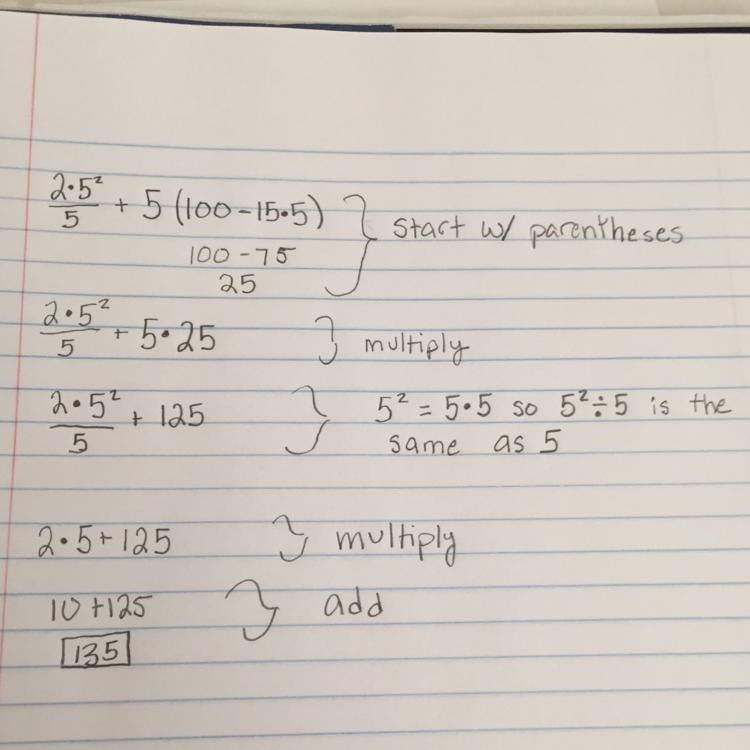 2•5²/5 + 5 (100-15•5) } start w/ parentheses
100-75
25
2•5²/5 + 5•25 } multiply
2•5²/5 + 125 } 5² = 5•5 so 5²÷5 is the
same as 5
2•5+125 } multiply
10+125 } add
135